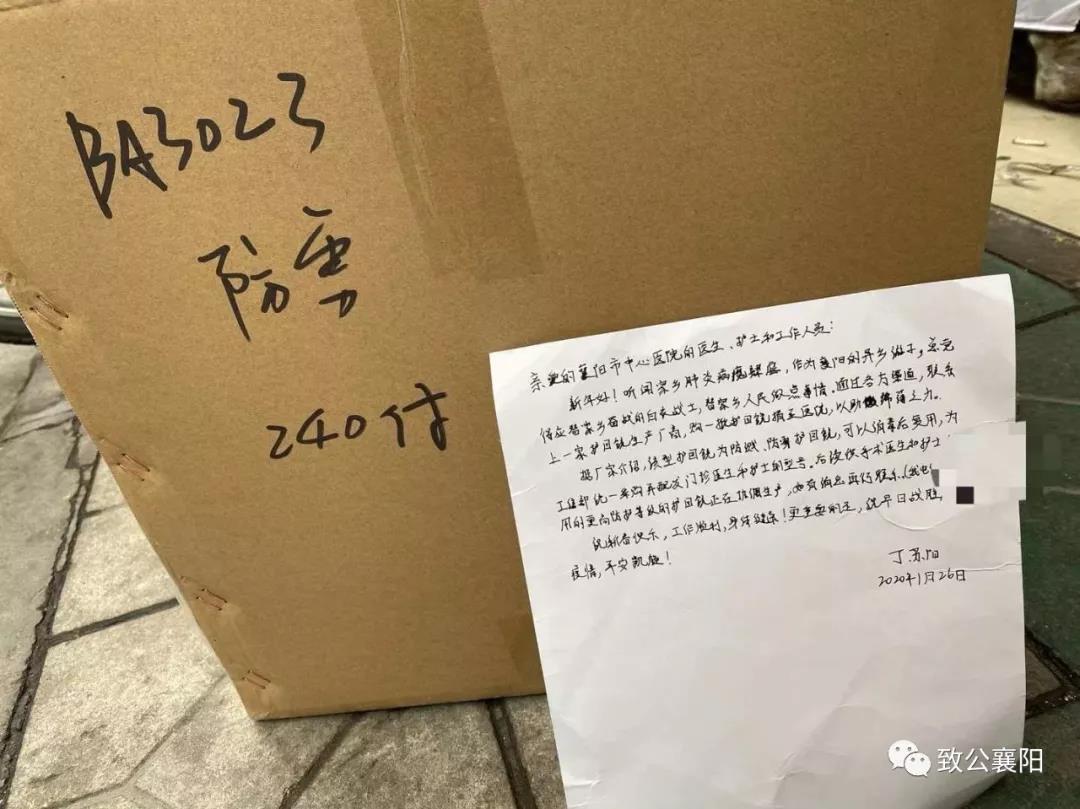 BA3023
防雾
240付
亲爱的襄阳市中心医院的医生、护士和工作人员：
新年好！听闻家乡肺炎病疫肆虐，作为襄阳的异乡游子，总觉
得应替家乡奋战的白衣战士，替家乡人民做点事情。通过各方渠道，联系
上一家护目镜生产厂商，购一批护目镜捐至医院，以助微薄之力。
据厂家介绍，该型护目镜为防溅、防雾护目镜，可以消毒后复用，为
工信部统一采购并配发门诊医生和护士的型号。后续供手术医生和护士
用的更高防护等级的护目镜正在加紧生产，如有消息再行联系
祝新春快乐，工作顺利，身体健康！更重要的是，祝早日战胜
疫情，平安凯旋！
丁苏阳
2020年1月26日
致公襄阳